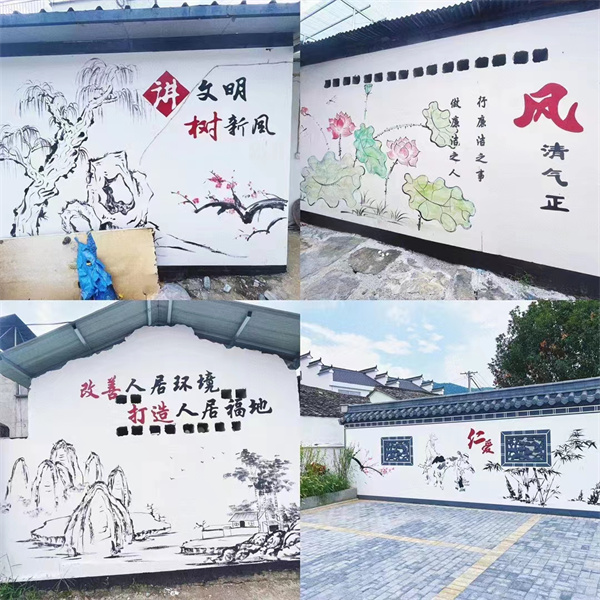 讲文明
树新风
风清气正
行廉洁之事
做廉洁之人
改善人居环境
打造人居福地
仁爱